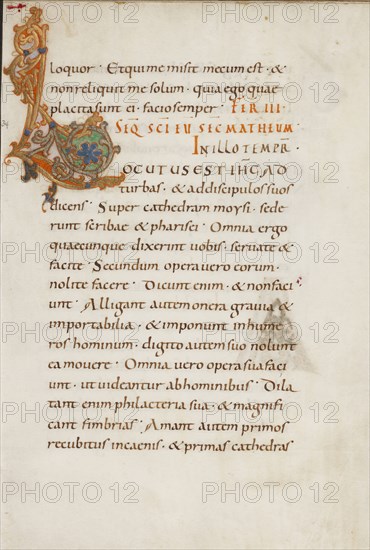 loquor · Et qui me misit mecum est · &
non reliquit me solum · quia ego quae
placita sunt ei · facio semper · FER III ·
SEQ SCI EU SEC MATHEUM
IN ILLO TEMPR
LOCUTUS EST IHC AD
turbas · & ad discipulos suos
dicens Super cathedram moysi · sede
runt scribae & pharisei Omnia ergo
quaecunque dixerint uobis · seruate &
facite Secundum opera uero eorum ·
nolite facere Dicunt enim · & non faci
unt Alligant autem onera grauia &
importabilia · & imponunt in hume
ros hominum · digito autem suo nolunt
ea mouere Omnia uero opera sua faci
unt · ut uideantur ab hominibus Dila
tant enim philacteria sua · & magnifi
cant fimbrias Amant autem primos
recubitus in caenis · & primas cathedras
PHOTO 12